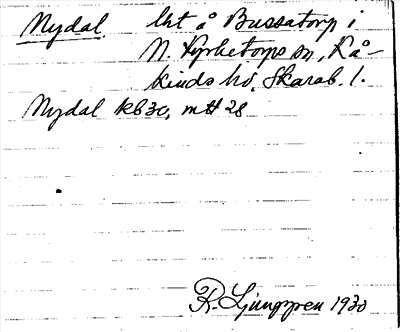 Nydal lht å Bussatorp i
N. Kyrketorps sn, Kå-
kinds hd. Skarab. l.
Nydal kb 30, mtl 28
R. Ljunggren 1930